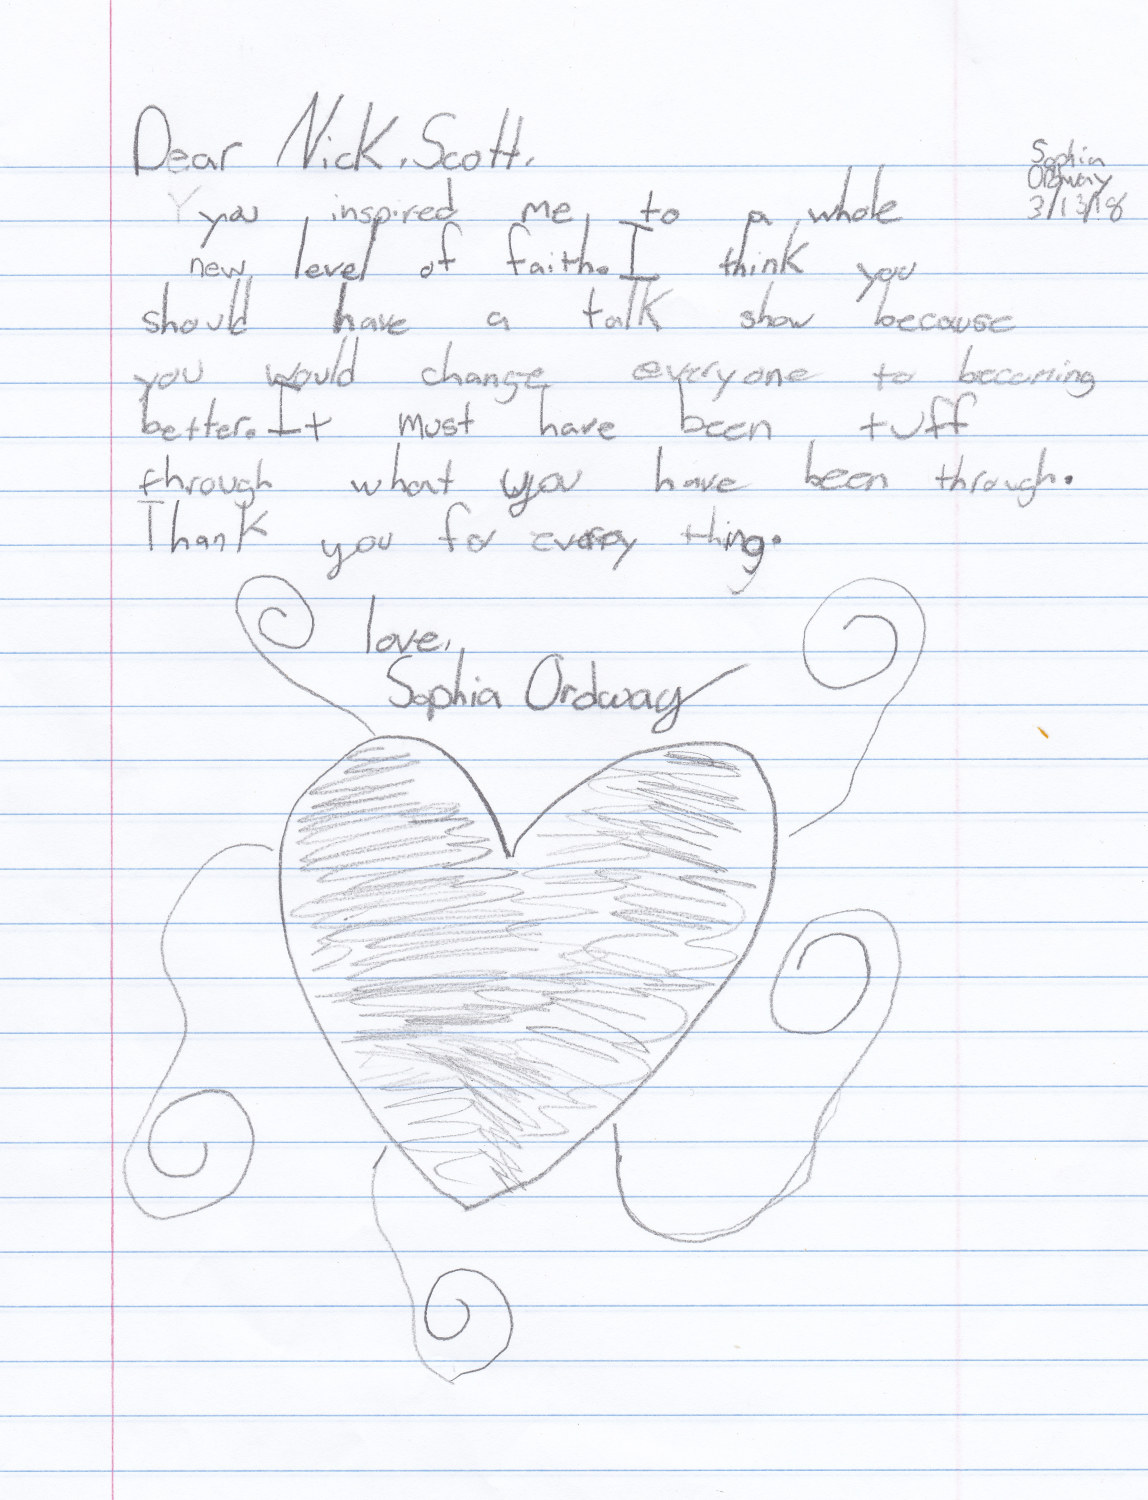 Dear Nick, Scott,
Sophia
Ordway
3/13/18
you inspired me to a whole
new level of faith. I think you
should have a talk show because
you would change everyone to becoming
better. It must have been tuff
through what you have been through.
Thank you for every thing.
love,
Sophia Ordway